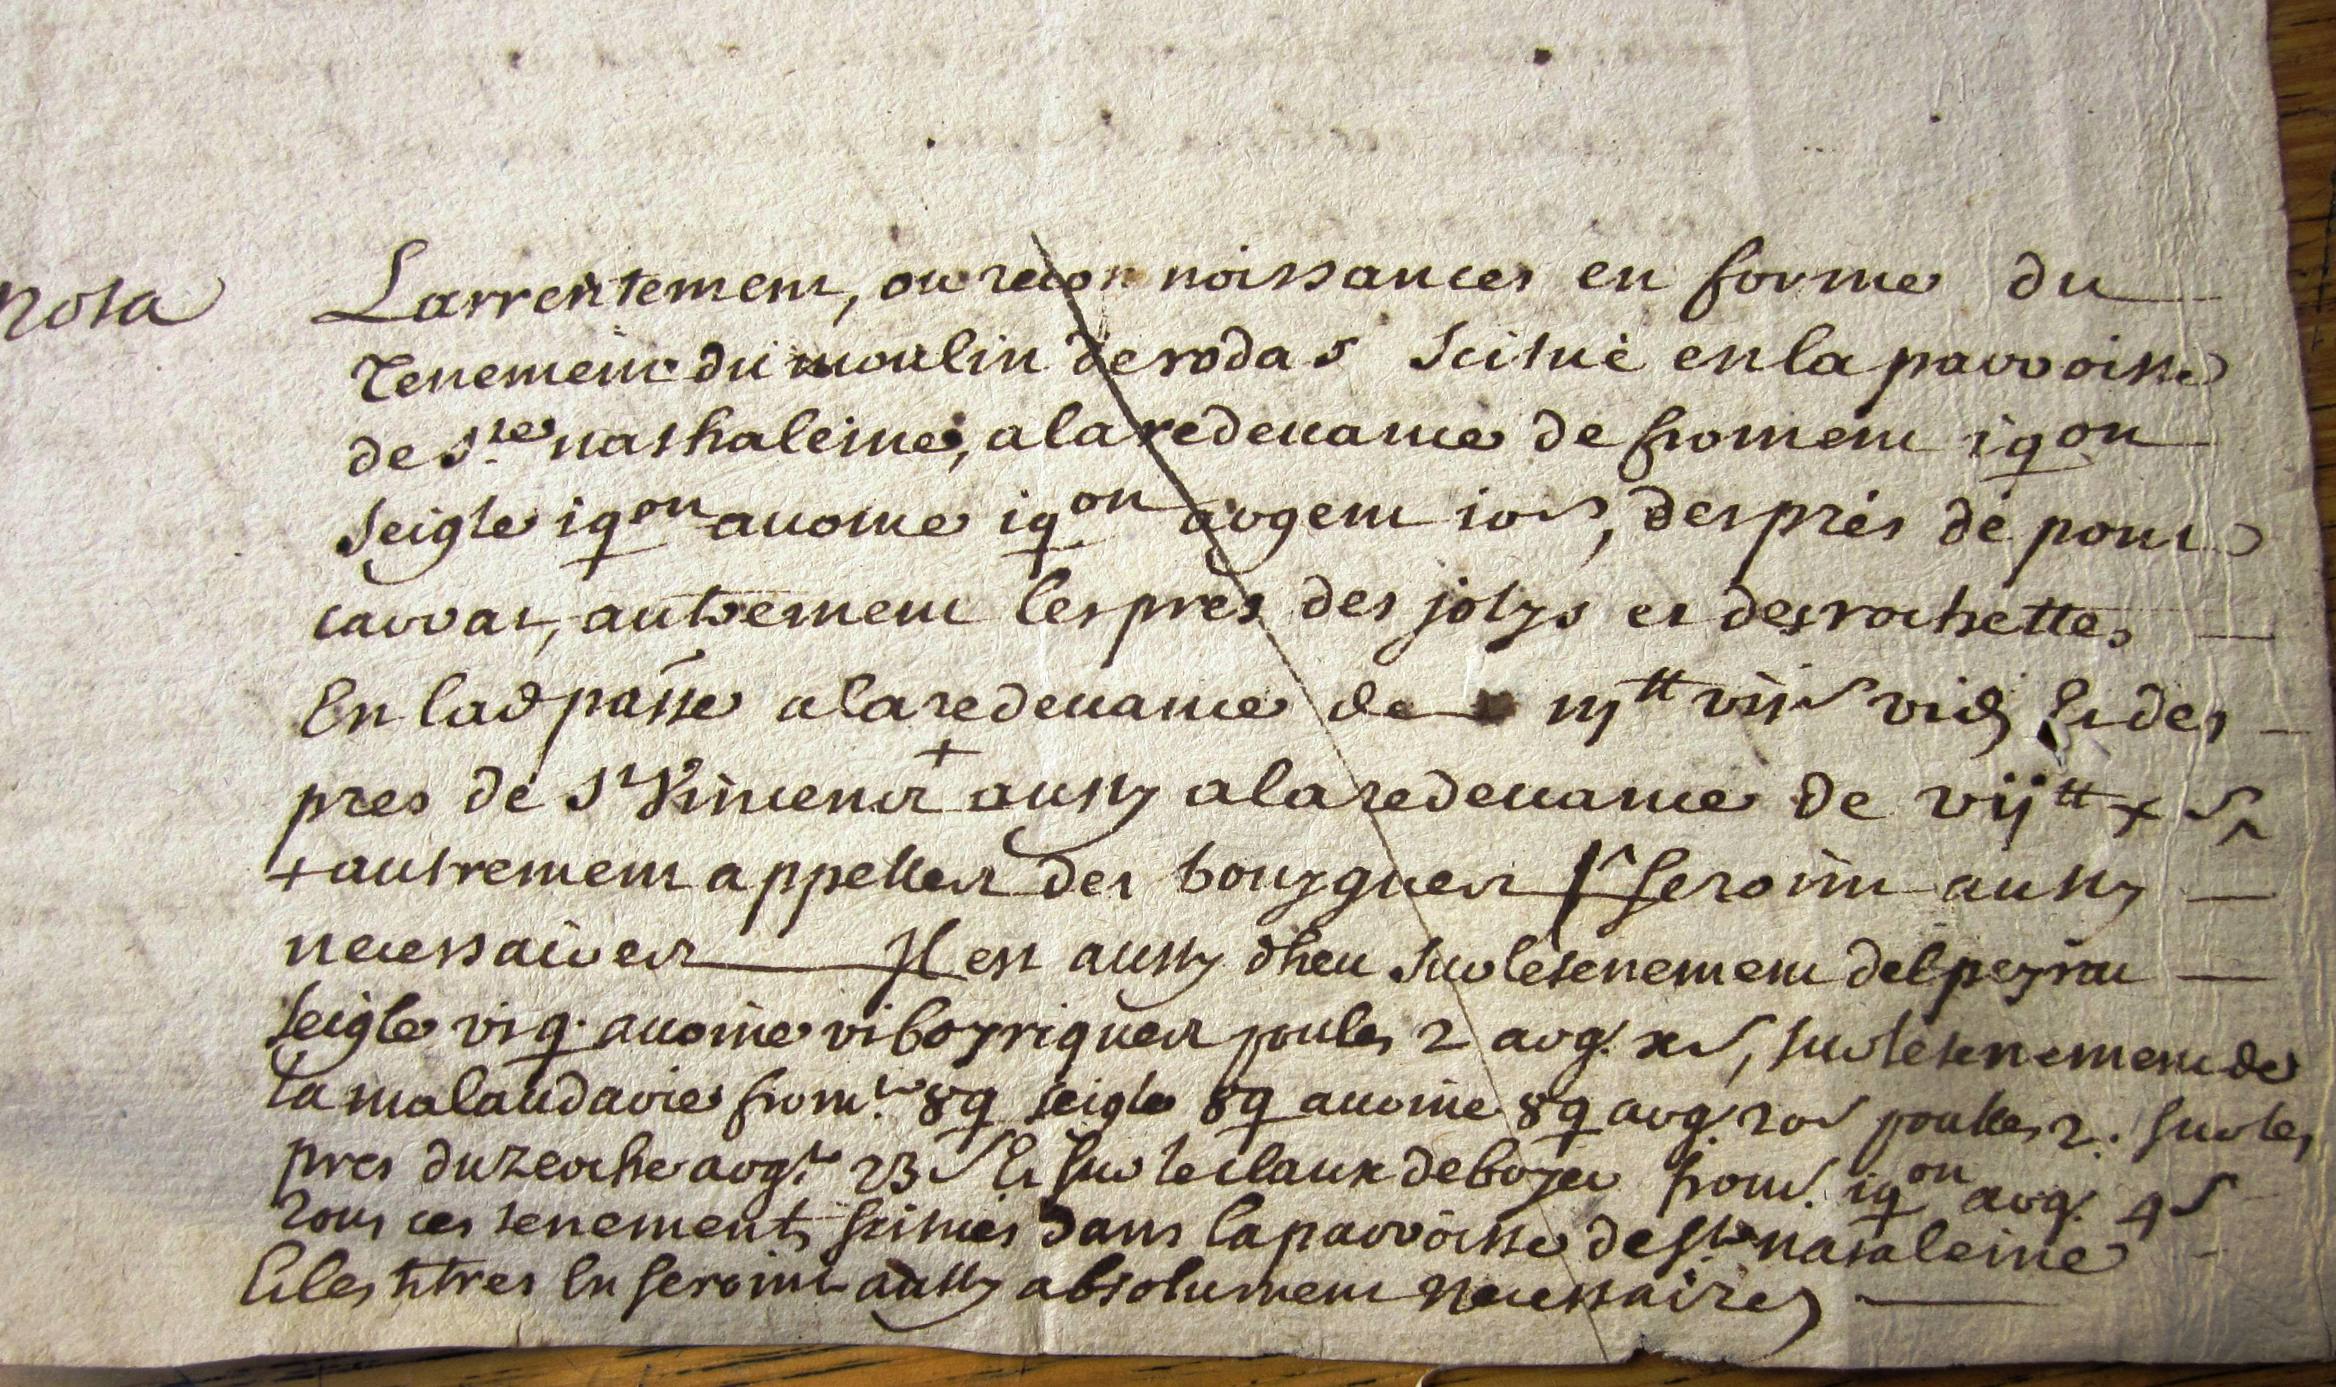 nota Larrentement, ou recon noissances en forme du
Tenement du moulin de rodas scitué en la parroisse
de Ste nathaleine, a la redeuance de froment 1 qon
seigle 1 qon auoine 1 qon argent 10 s, des prés de pont
carrat, autrement les pres des jolys et des rochettes
En lad passe a la redeuance de iij tt vij s vi d Et des
pres de St Vincent + aussy a la redeuance de vij tt x s
+ autrement appelles des bouygues seroint aussy
necessaires Il est aussy dheu sur le tenement del peyrou
seigle vi q. auoine vi boyriques poules 2 arg. x s, sur le tenement de
la malaudarie fromt 8 q seigle 8 q auoine 8 q arg. 20 s poulles 2. sur les
pres du zerche argt 23 s Et sur le claux de boyer from. 1 qon arg. 4 s
Tous ces tenements scitués dans la parroisse de Ste nataleine
Et les titres En seroint aussy absolument necessaires